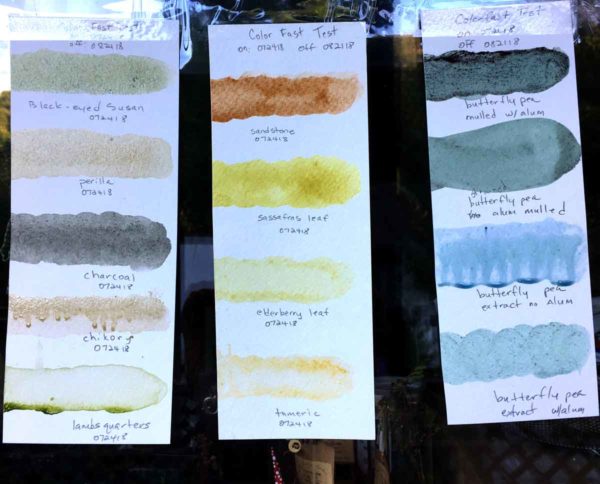 Color Fast Test
off: 082118
Black-eyed Susan
072418
perilla
072418
charcoal
072418
chikory
072418
lambsquarters
072418
Color Fast Test
on: 072418 off 082118
sandstone
072418
sassafras leaf
072418
elderberry leaf
072418
tumeric
072418
Colorfast Test
on: 072418
off 082118
butterfly pea
mulled w/alum
butterfly pea
no alum mulled
butterfly pea
extract no alum
butterfly pea
extract w/alum